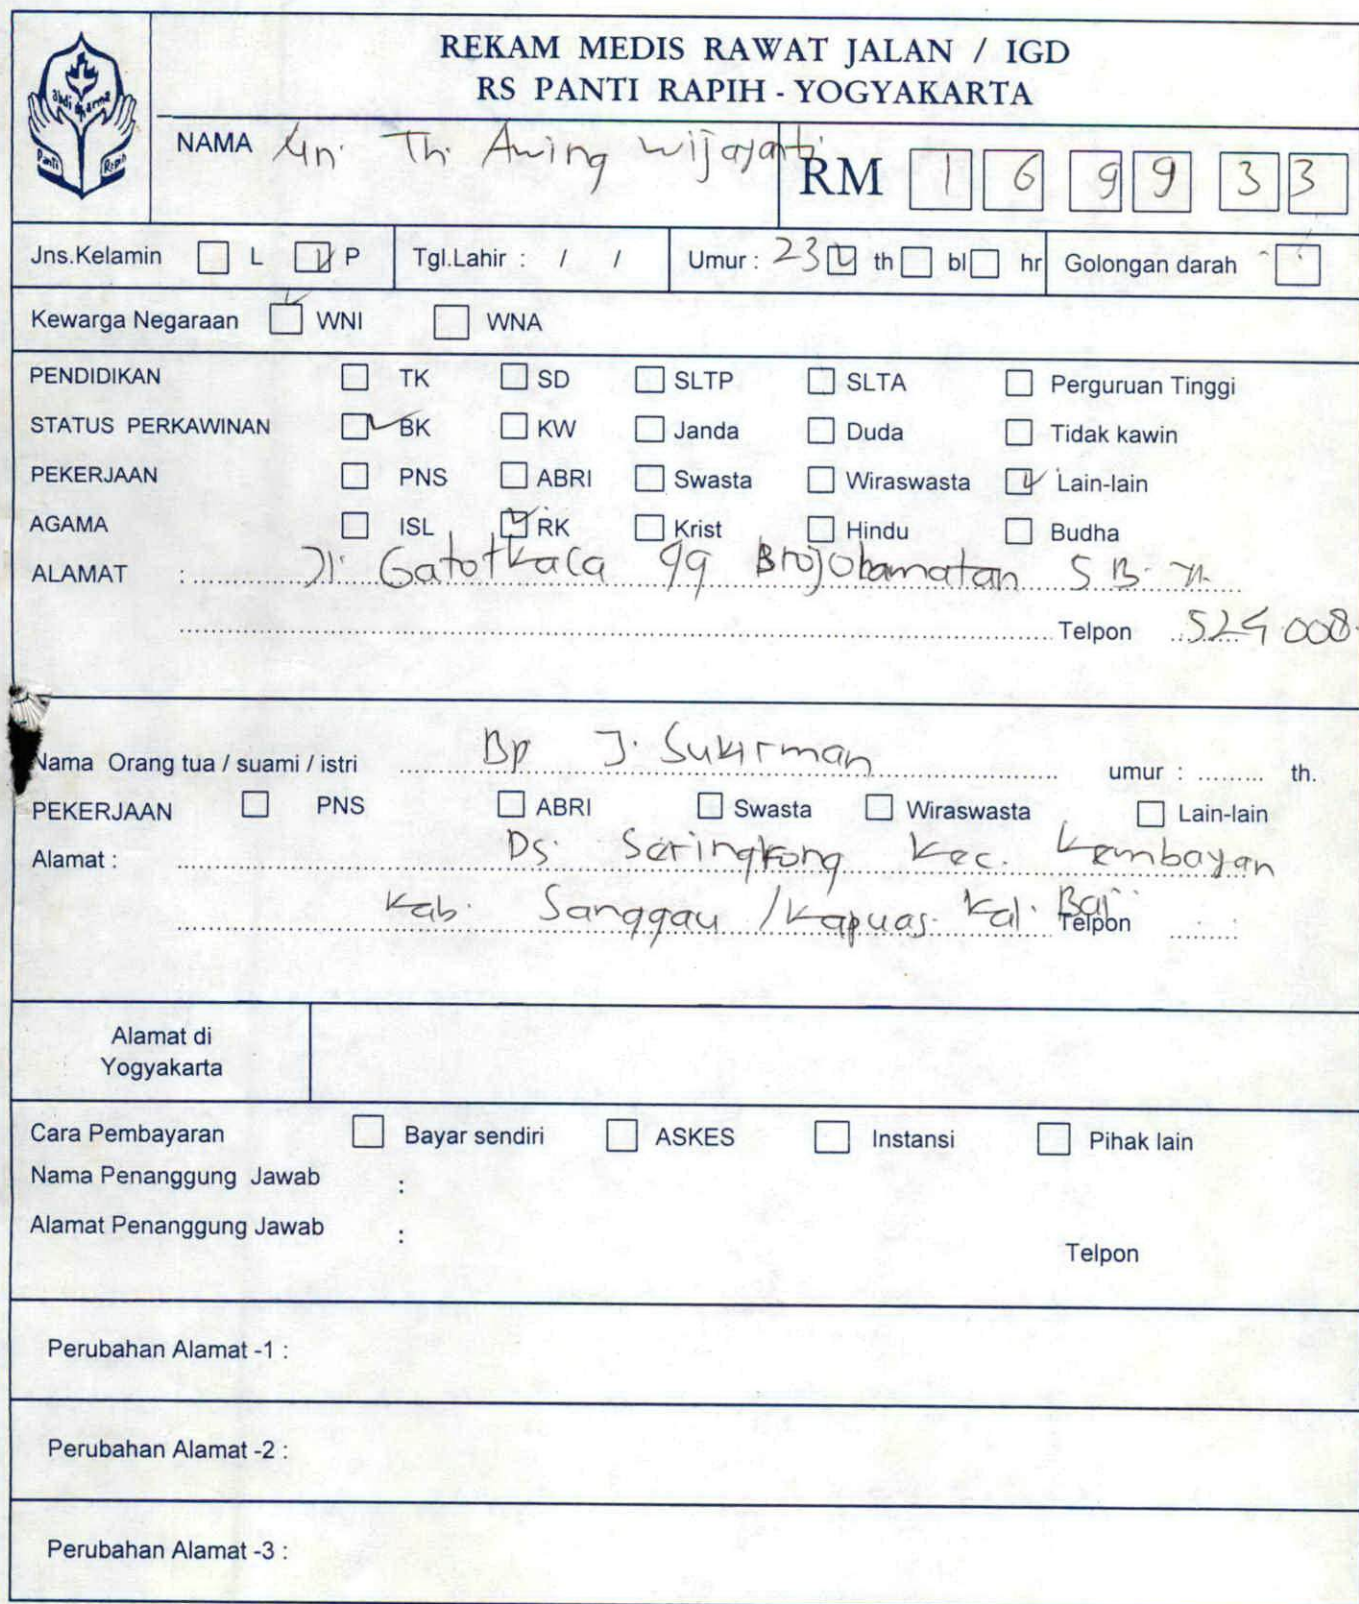 REKAM MEDIS RAWAT JALAN / IGD
RS PANTI RAPIH - YOGYAKARTA
abdi darma
Panti Rapih
NAMA Th. Aning Wijayanti
RM 1 6 9 9 3 3
Jns.Kelamin L P Tgl.Lahir : / / Umur : 23 th bl hr Golongan darah
Kewarga Negaraan WNI WNA
PENDIDIKAN TK SD SLTP SLTA Perguruan Tinggi
STATUS PERKAWINAN BK KW Janda Duda Tidak kawin
PEKERJAAN PNS ABRI Swasta Wiraswasta Lain-lain
AGAMA ISL RK Krist Hindu Budha
ALAMAT : Jl. Gatotkaca gg Brojolamatan
Telpon
Nama Orang tua / suami / istri Bp J. Sukirman umur : ......... th.
PEKERJAAN PNS ABRI Swasta Wiraswasta Lain-lain
Alamat : Ds. Seringkong Kec. Kembayan
Kab. Sanggau / Kapuas. Kal. Bar Telpon
Alamat di
Yogyakarta
Cara Pembayaran Bayar sendiri ASKES Instansi Pihak lain
Nama Penanggung Jawab :
Alamat Penanggung Jawab :
Telpon
Perubahan Alamat -1 :
Perubahan Alamat -2 :
Perubahan Alamat -3 :